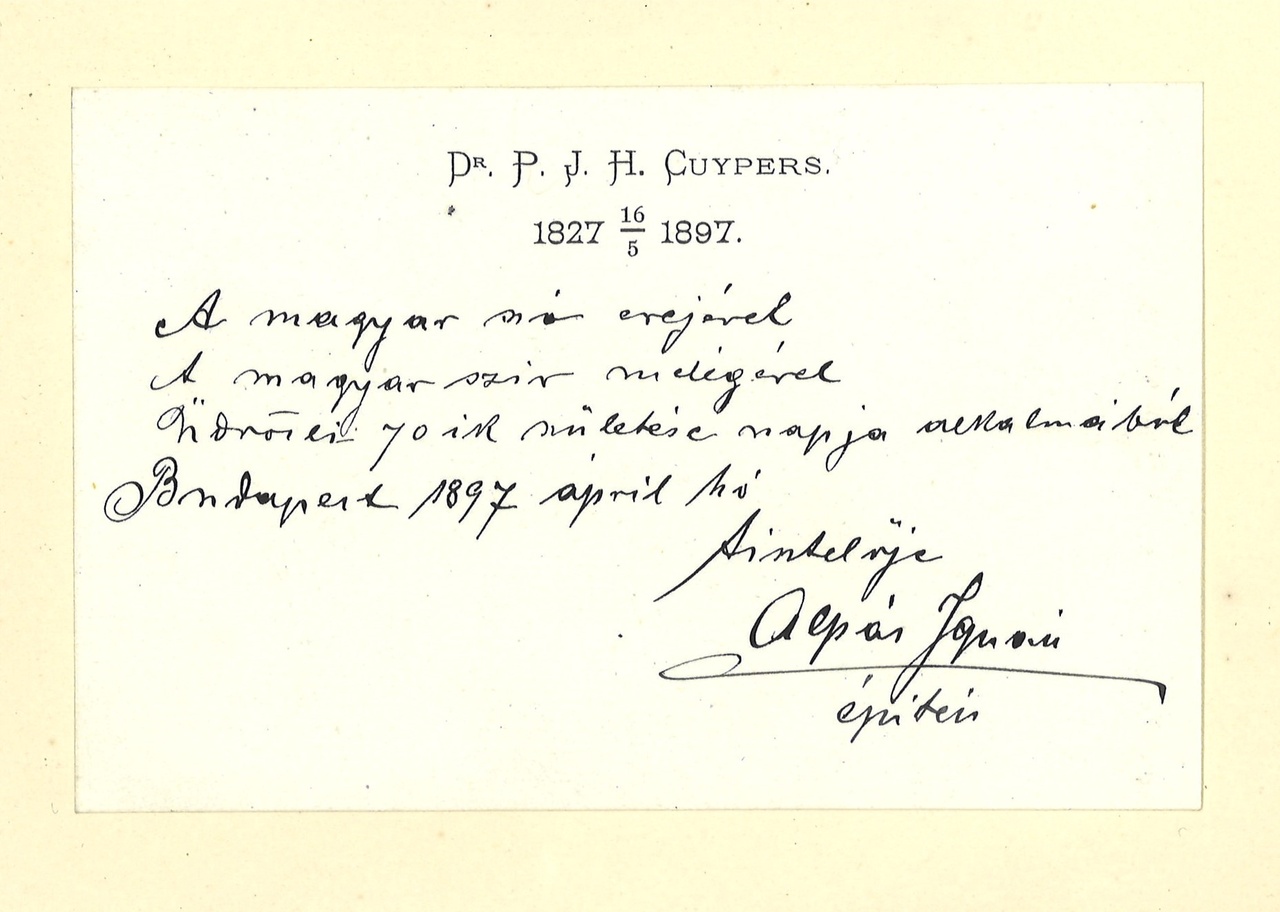 Dr. P. J. H. Cuypers.
1827 16/5 1897.
A magyar szó erejével
A magyar sziv melegével
Üdvözli 70ik születése napja alkalmából
Budapest 1897 április hó
tisztelője
Alpár Ignácz
épitész